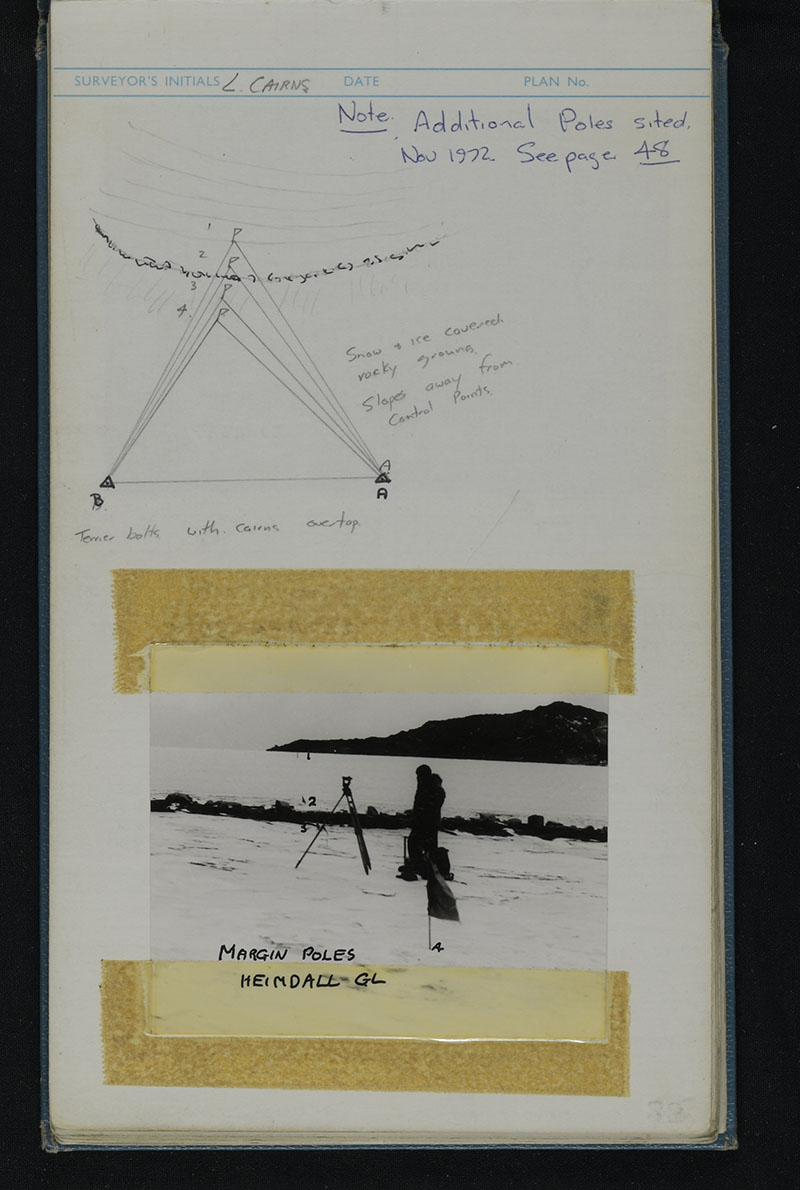 SURVEYOR'S INITIALS L. CAIRNS DATE PLAN No.
Note. Additional Poles sited.
Nov 1972 See page 48
1
2
3
4.
Snow & ice covered
rocky ground.
Slopes away from
Control Points.
A
B
A
bolts with cairns overtop.
1
2
3
4
MARGIN POLES
HEIMDALL GL